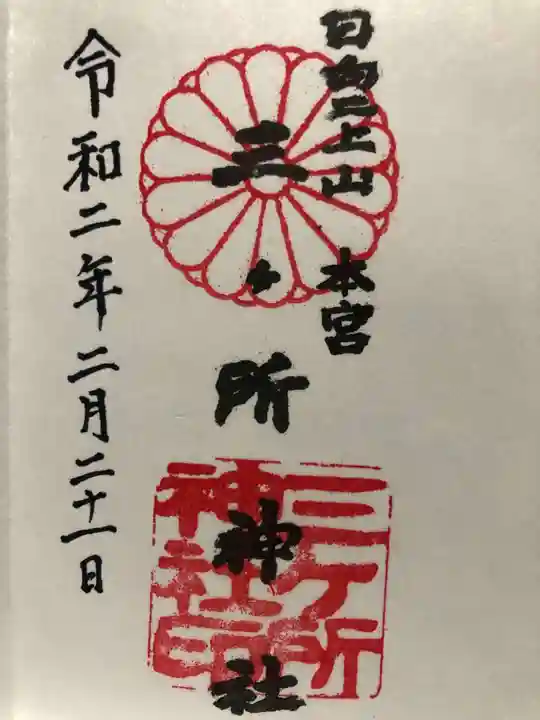 日向二上山 本宮
三ヶ所神社
三ヶ所
神社印
令和二年二月二十一日